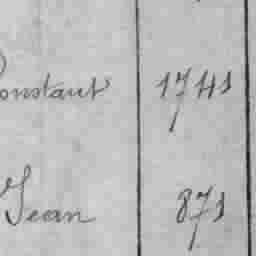 Constant 1741
Jean 871